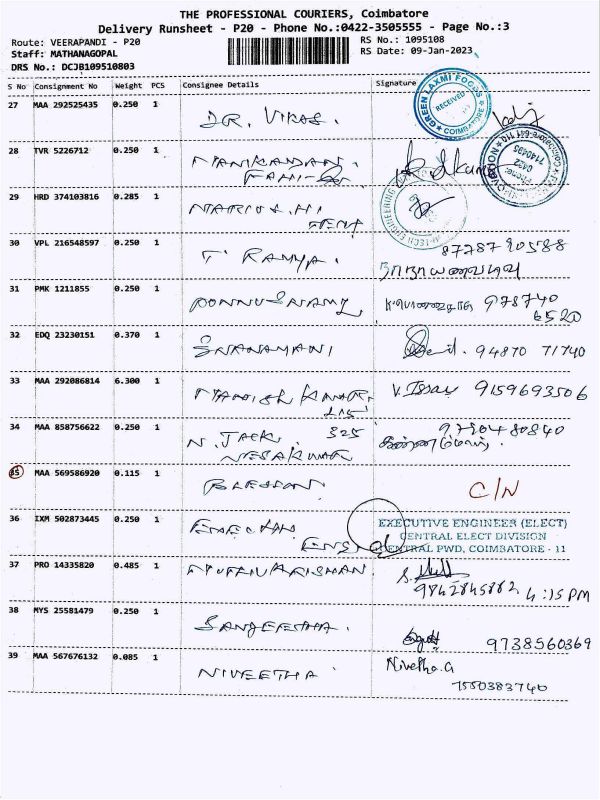 THE PROFESSIONAL COURIERS, Coimbatore
Delivery Runsheet - P20 - Phone No.:0422-3505555 - Page No.:3
Route: VEERAPANDI - P20
RS No.: 1095108
Staff: MATHANAGOPAL
RS Date: 09-Jan-2023
DRS No.: DCJB109510803
S No Consignment No Weight PCS Consignee Details Signature
GREEN LAXMI FOODS
RECEIVED
COIMBATORE
27 MAA 292525435 0.250 1 DR. VIKAS.
28 TVR 5226712 0.250 1 MANIKANDAN.
Coimbatore-641 110
Phone:
0422
7140495
29 HRD 374103816 0.285 1
30 VPL 216548597 0.250 1 T RAMYA. 87787 90588
31 PMK 1211855 0.250 1 PONNUSWAMY 978740
6520
32 EDQ 23230151 0.370 1 94870 71740
33 MAA 292086814 6.300 1 MANISH KUMAR. V. Issac 9159693506
34 MAA 858756622 0.250 1 N. JACK. 325 9790480840
NESAKUMAR
35 MAA 569586920 0.115 1 BLESSON. C/N
36 IXM 502873445 0.250 1 EXECUTIVE ENGINEER (ELECT)
CENTRAL ELECT DIVISION
CENTRAL PWD, COIMBATORE - 11
37 PRO 14335820 0.485 1 MUTHUKRISHNAN
9842845882 4:15 PM
38 MYS 25581479 0.250 1 SANGEETHA. 9738560369
39 MAA 567676132 0.085 1 NIVEETHA Nivetha.G
7550383740